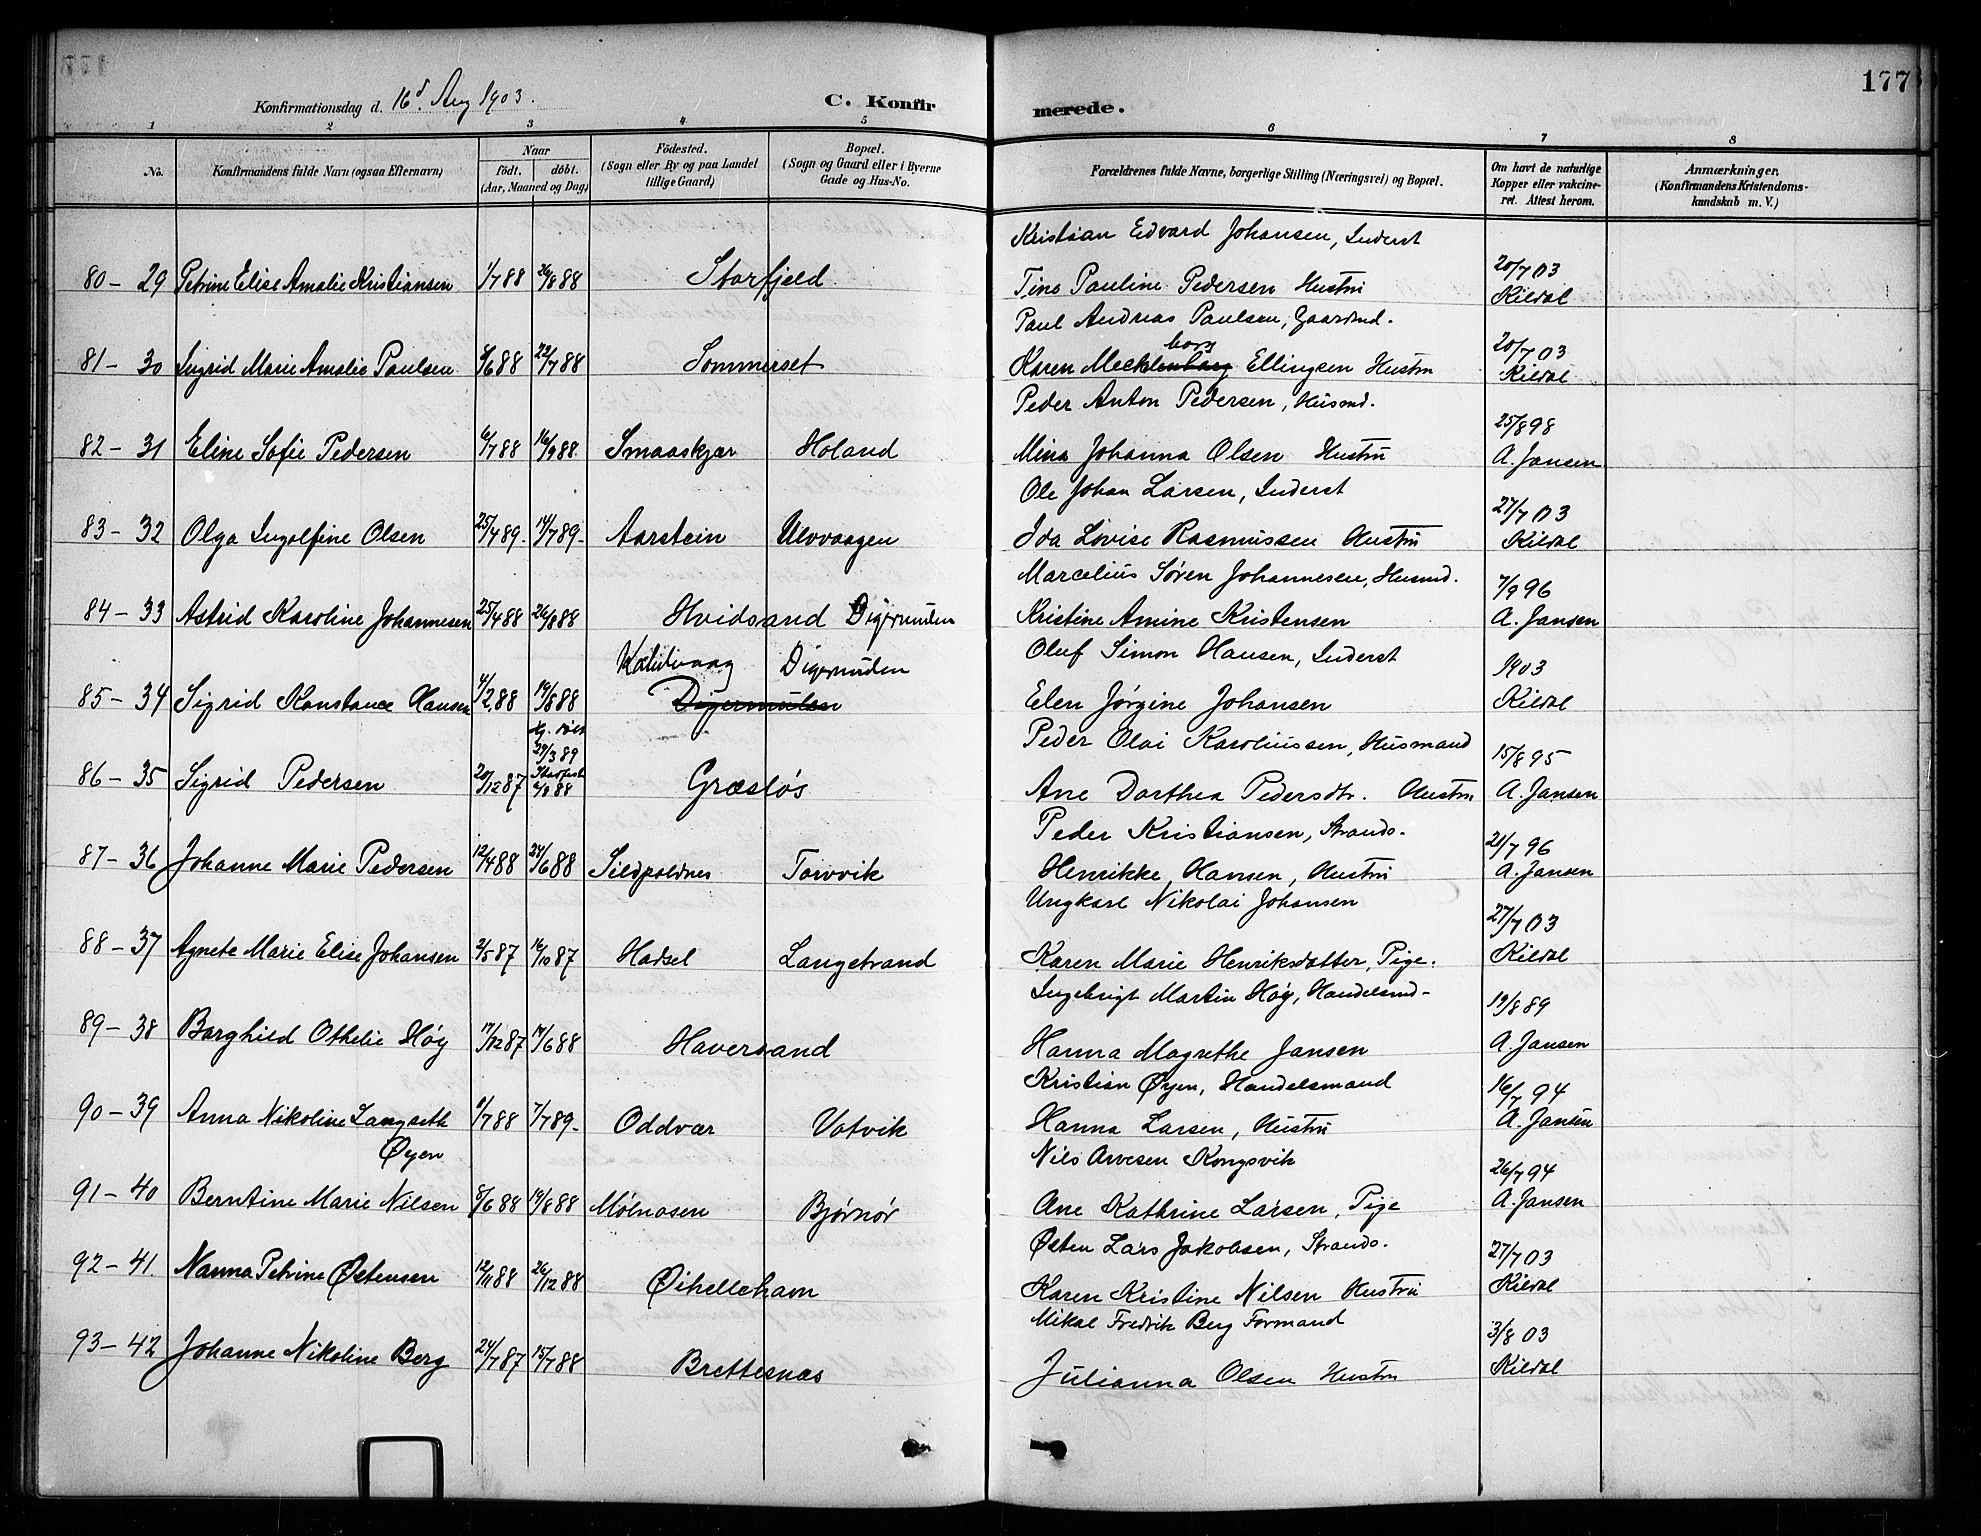 177
Konfirmationsdag d. 16d Aug 1903.
C. Konfirmerede.
1 2 3 4 5 6 7 8
No.
Konfirmandens fulde Navn (ogsaa Efternavn)
Naar
födt. döbt.
(Aar, Maaned og Dag)
Födested.
(Sogn eller By og paa Landet
tillige Gaard)
Bopæl.
(Sogn og Gaard eller i Byerne
Gade og Hus-No.
Forældrenes fulde Navne, borgerlige Stilling (Næringsvei) og Bopæl.
Om havt de naturlige
Kopper eller vakcine-
ret. Attest herom.
Anmærkninger.
(Konfirmandens Kristendoms-
kundskab m. V.)
Kristian Edvard Johansen, Inderst
80 – 29 Petrine Elise Amalie Kristiansen 1/7 88 26/8 88 Storfjeld Tina Pauline Pedersen Hustru 20/7 03 Kildal
Paul Andreas Paulsen, Gaardmd.
81 – 30 Ingrid Marie Amalie Paulsen 8/6 88 22/7 88 Sommerset Karen Mecklenbarg borg Ellingsen Hustru 20/7 03 Kildal
Peder Anton Pedersen, Husmd.
82 – 31 Eline Sofie Pedersen 6/7 88 16/9 88. Smaaskjær Holand Mina Johanna Olsen Hustru 25/8 98 A. Jansen
Ole Johan Larsen, Inderst
83 – 32 Olga Ingolfine Olsen 25/4 89. 14/7 89. Aarstein Ulvvaagen Ida Lovise Rasmussen Hustru 27/7 03 Kildal
Marcelius Søren Johannesen, Husmd.
84 – 33 Astrid Karoline Johannesen 25/4 88 26/8 88 Hvidsand Digermulen Kristine Amine Kristensen 7/9 96 A. Jansen
Digermulen Oluf Simon Hansen, Inderst
85 – 34 Sigrid Konstance Hansen 4/2 88 19/8 88 Digermulen Elen Jørgine Johansen 1903 Kildal
29/3 89 Peder Olai Karoliussen, Husmand
86 – 35 Sigrid Pedersen 20/12 87 Græsløs Ane Dorthea Pedersdtr. Hustru 15/8 95 A. Jansen
Peder Kristiansen, Strands.
87 – 36 Johanne Marie Pedersen 12/4 88 24/6 88 Sildpoldnes Torvvik Henrikke Hansen, Hustru 21/7 96 A. Jansen
Ungkarl Nikolai Johansen
88 – 37 Agnete Marie Elise Johansen 2/5 87 16/10 87 Hadsel Langstrand Karen Marie Henriksdatter, Pige. 27/7 03 Kildal
Ingebrigt Martin Høg, Handelsmd –
89 – 38 Borghild Othelie Høg 17/12 87 17/6 88 Haversand Hanna Magrethe Jansen 19/8 89 A. Jansen
Kristian Øyen, Handelsmand
90 – 39 Anna Nikoline Langseth 1/7 88 7/7 89. Oddvær Vatvik Hanna Larsen, Hustru 16/7 94 A. Jansen
Øyen
Nils Arvesen Kongsvik
91 – 40 Berntine Marie Nilsen 8/6 88 19/8 88 Mølnosen Bjørnør Ane Kathrine Larsen, Pige 26/7 94 A. Jansen
Østen Lars Jakobsen, Strands.
92 – 41. Nanna Petrine Østensen 12/11 88 26/12 88 Øihellehavn Karen Kristine Nilsen Hustru 27/7 03 Kildal
Mikal Fredrik Berg Formand
93 – 42 Johanne Nikoline Berg 24/7 87 15/7 88 Brettesnæs Julianna Olsen Hustru 3/8 03 Kildal